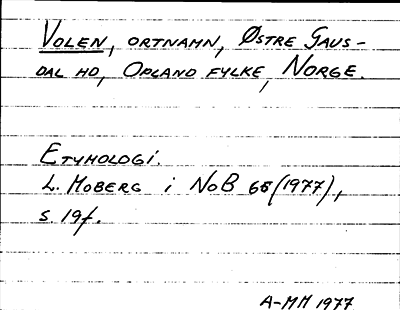 VOLEN, ORTNAMN, ØSTRE GAUS-
DAL HD, OPLAND FYLKE, NORGE.
ETYMOLOGI.
L. MOBERG i NoB 65(1977),
S. 19f.
A-MM 1977